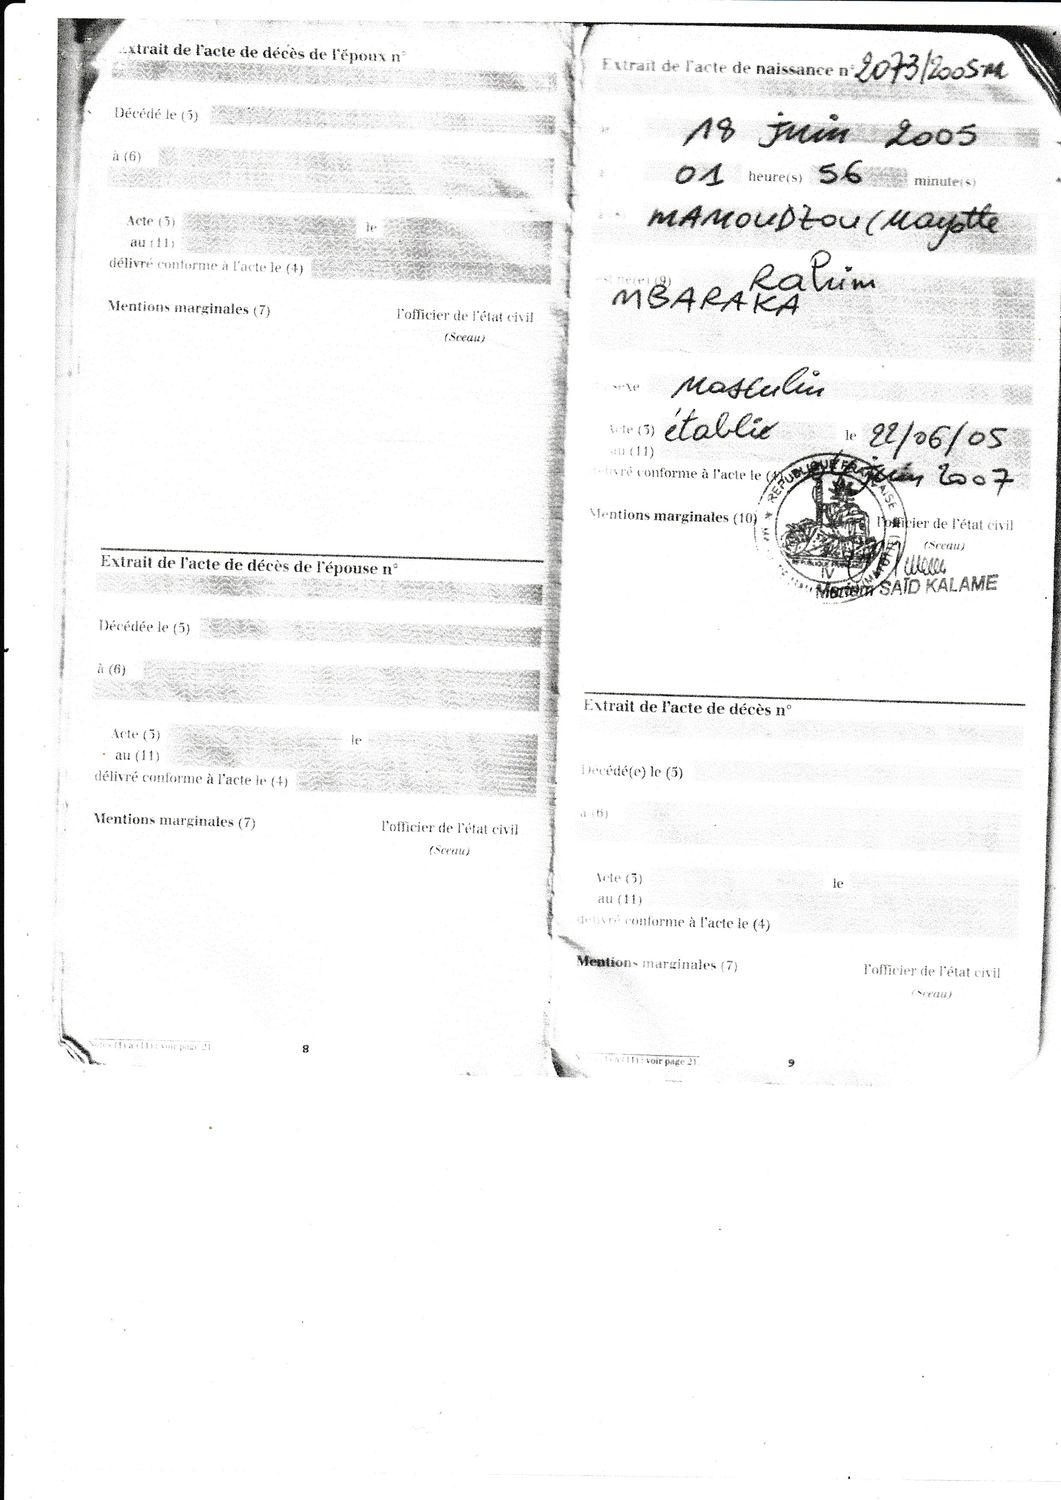 Extrait de l'acte de décès de l'époux n°
Décédé le (5)
à (6)
Acte (3) le
au (11)
délivré conforme à l'acte le (4)
Mentions marginales (7)
l'officier de l'état civil
(Sceau)
Extrait de l'acte de décès de l'épouse n°
Décédée le (5)
à (6)
Acte (3) le
au (11)
délivré conforme à l'acte le (4)
Mentions marginales (7)
l'officier de l'état civil
(Sceau)
Notes (1) à (11) : voir page 21
8
Extrait de l'acte de naissance n° 2073/2005-M
18 juin 2005
01 heure(s) 56 minute(s)
MAMOUDZOU (Mayotte
est né(e) (9) Rahim
MBARAKA
sexe Masculin
Acte (3) établie le 22/06/05
au (11)
délivré conforme à l'acte le (4) juin 2007
Mentions marginales (10)
l'officier de l'état civil
(Sceau)
REPUBLIQUE FRANÇAISE
IV
Mariam SAÏD KALAME
Extrait de l'acte de décès n°
Décédé(e) le (5)
à (6)
Acte (3) le
au (11)
délivré conforme à l'acte le (4)
Mentions marginales (7)
l'officier de l'état civil
(Sceau)
(1) à (11) : voir page 21
9